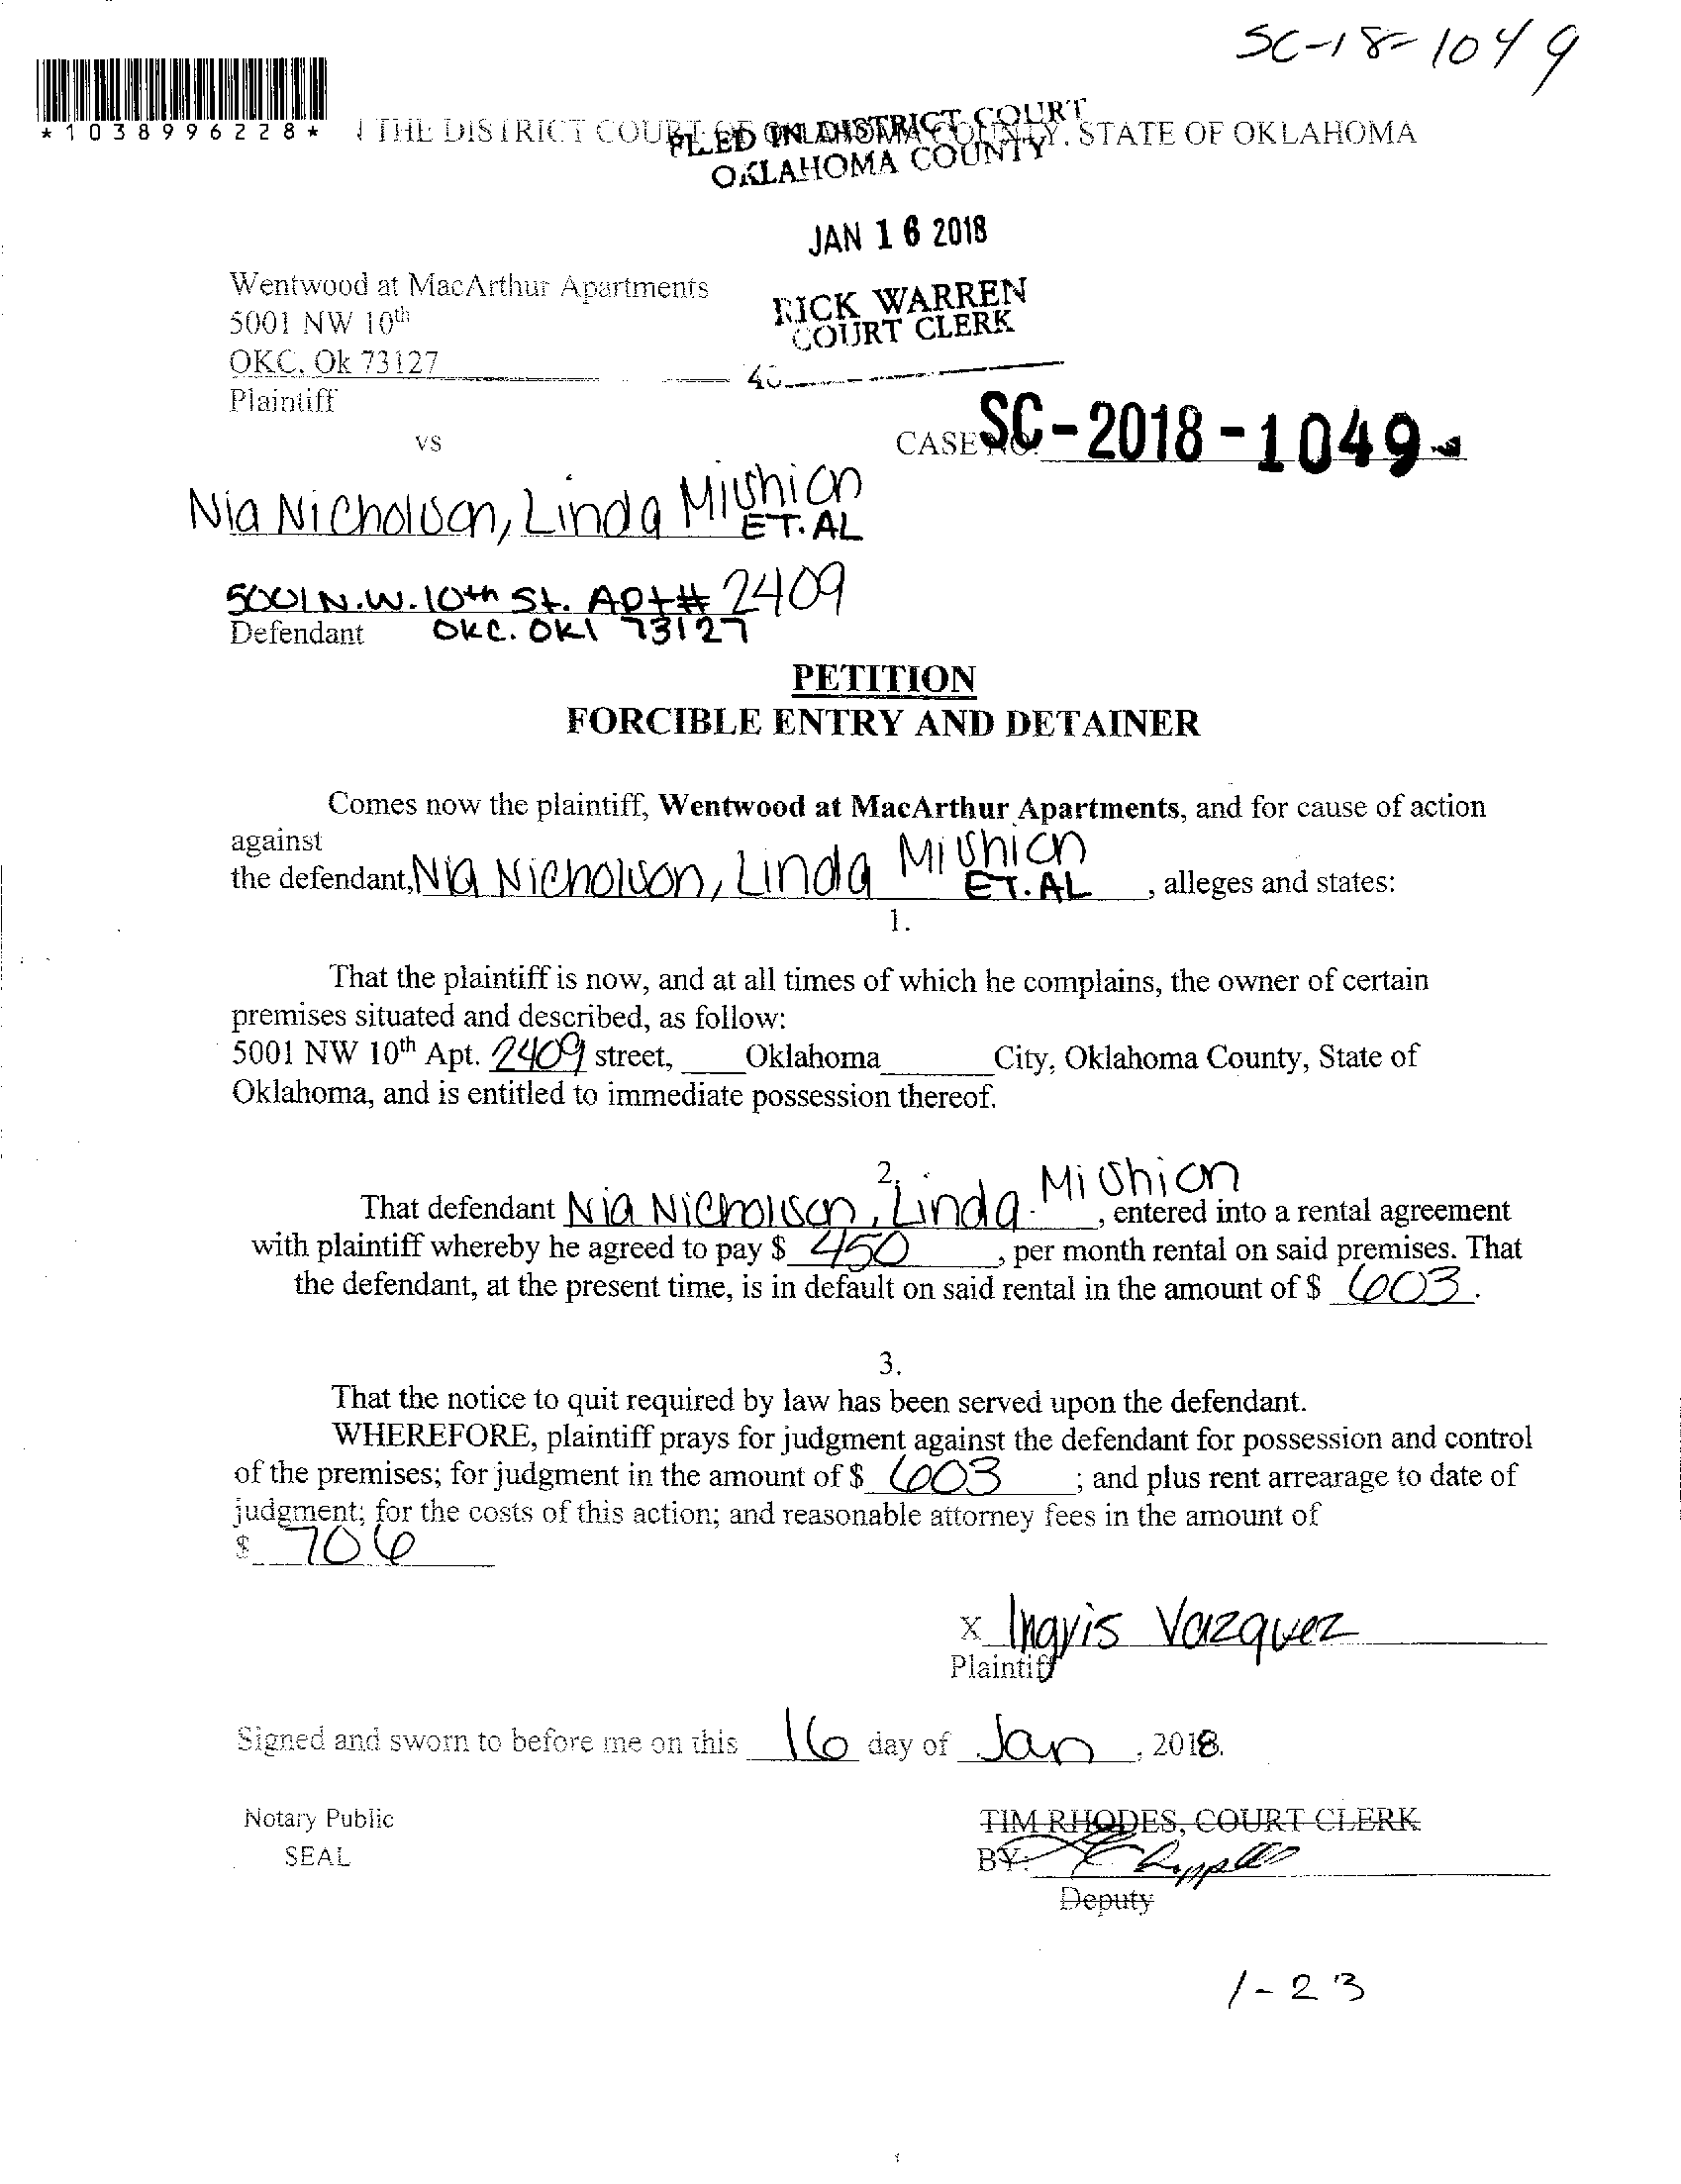 SC-18-1049
*1038996228*
THE DISTRICT COURT OF OKLAHOMA COUNTY, STATE OF OKLAHOMA
FILED IN DISTRICT COURT
OKLAHOMA COUNTY
JAN 16 2018
Wentwood at MacArthur Apartments
RICK WARREN
5001 NW 10th
COURT CLERK
OKC, Ok 73127
Plaintiff
vs
CASE NO. SC-2018-1049
Nia Nicholson, Linda Mishion
ET. AL
5001 N.W. 10th St. Apt# 2409
Defendant OKC. OKl 73127
PETITION
FORCIBLE ENTRY AND DETAINER
Comes now the plaintiff, Wentwood at MacArthur Apartments, and for cause of action
against
the defendant, Nia Nicholson, Linda Mishion ET. AL, alleges and states:
1.
That the plaintiff is now, and at all times of which he complains, the owner of certain
premises situated and described, as follow:
5001 NW 10th Apt. 2409 street, Oklahoma City, Oklahoma County, State of
Oklahoma, and is entitled to immediate possession thereof.
2.
That defendant Nia Nicholson, Linda Mishion, entered into a rental agreement
with plaintiff whereby he agreed to pay $ 450, per month rental on said premises. That
the defendant, at the present time, is in default on said rental in the amount of $ 603.
3.
That the notice to quit required by law has been served upon the defendant.
WHEREFORE, plaintiff prays for judgment against the defendant for possession and control
of the premises; for judgment in the amount of $ 603 ; and plus rent arrearage to date of
judgment; for the costs of this action; and reasonable attorney fees in the amount of
$ 706
x Ingvis Vazquez
Plaintiff
Signed and sworn to before me on this 16 day of Jan, 2018.
Notary Public
TIM RHODES, COURT CLERK
SEAL
BY:
Deputy
1-23